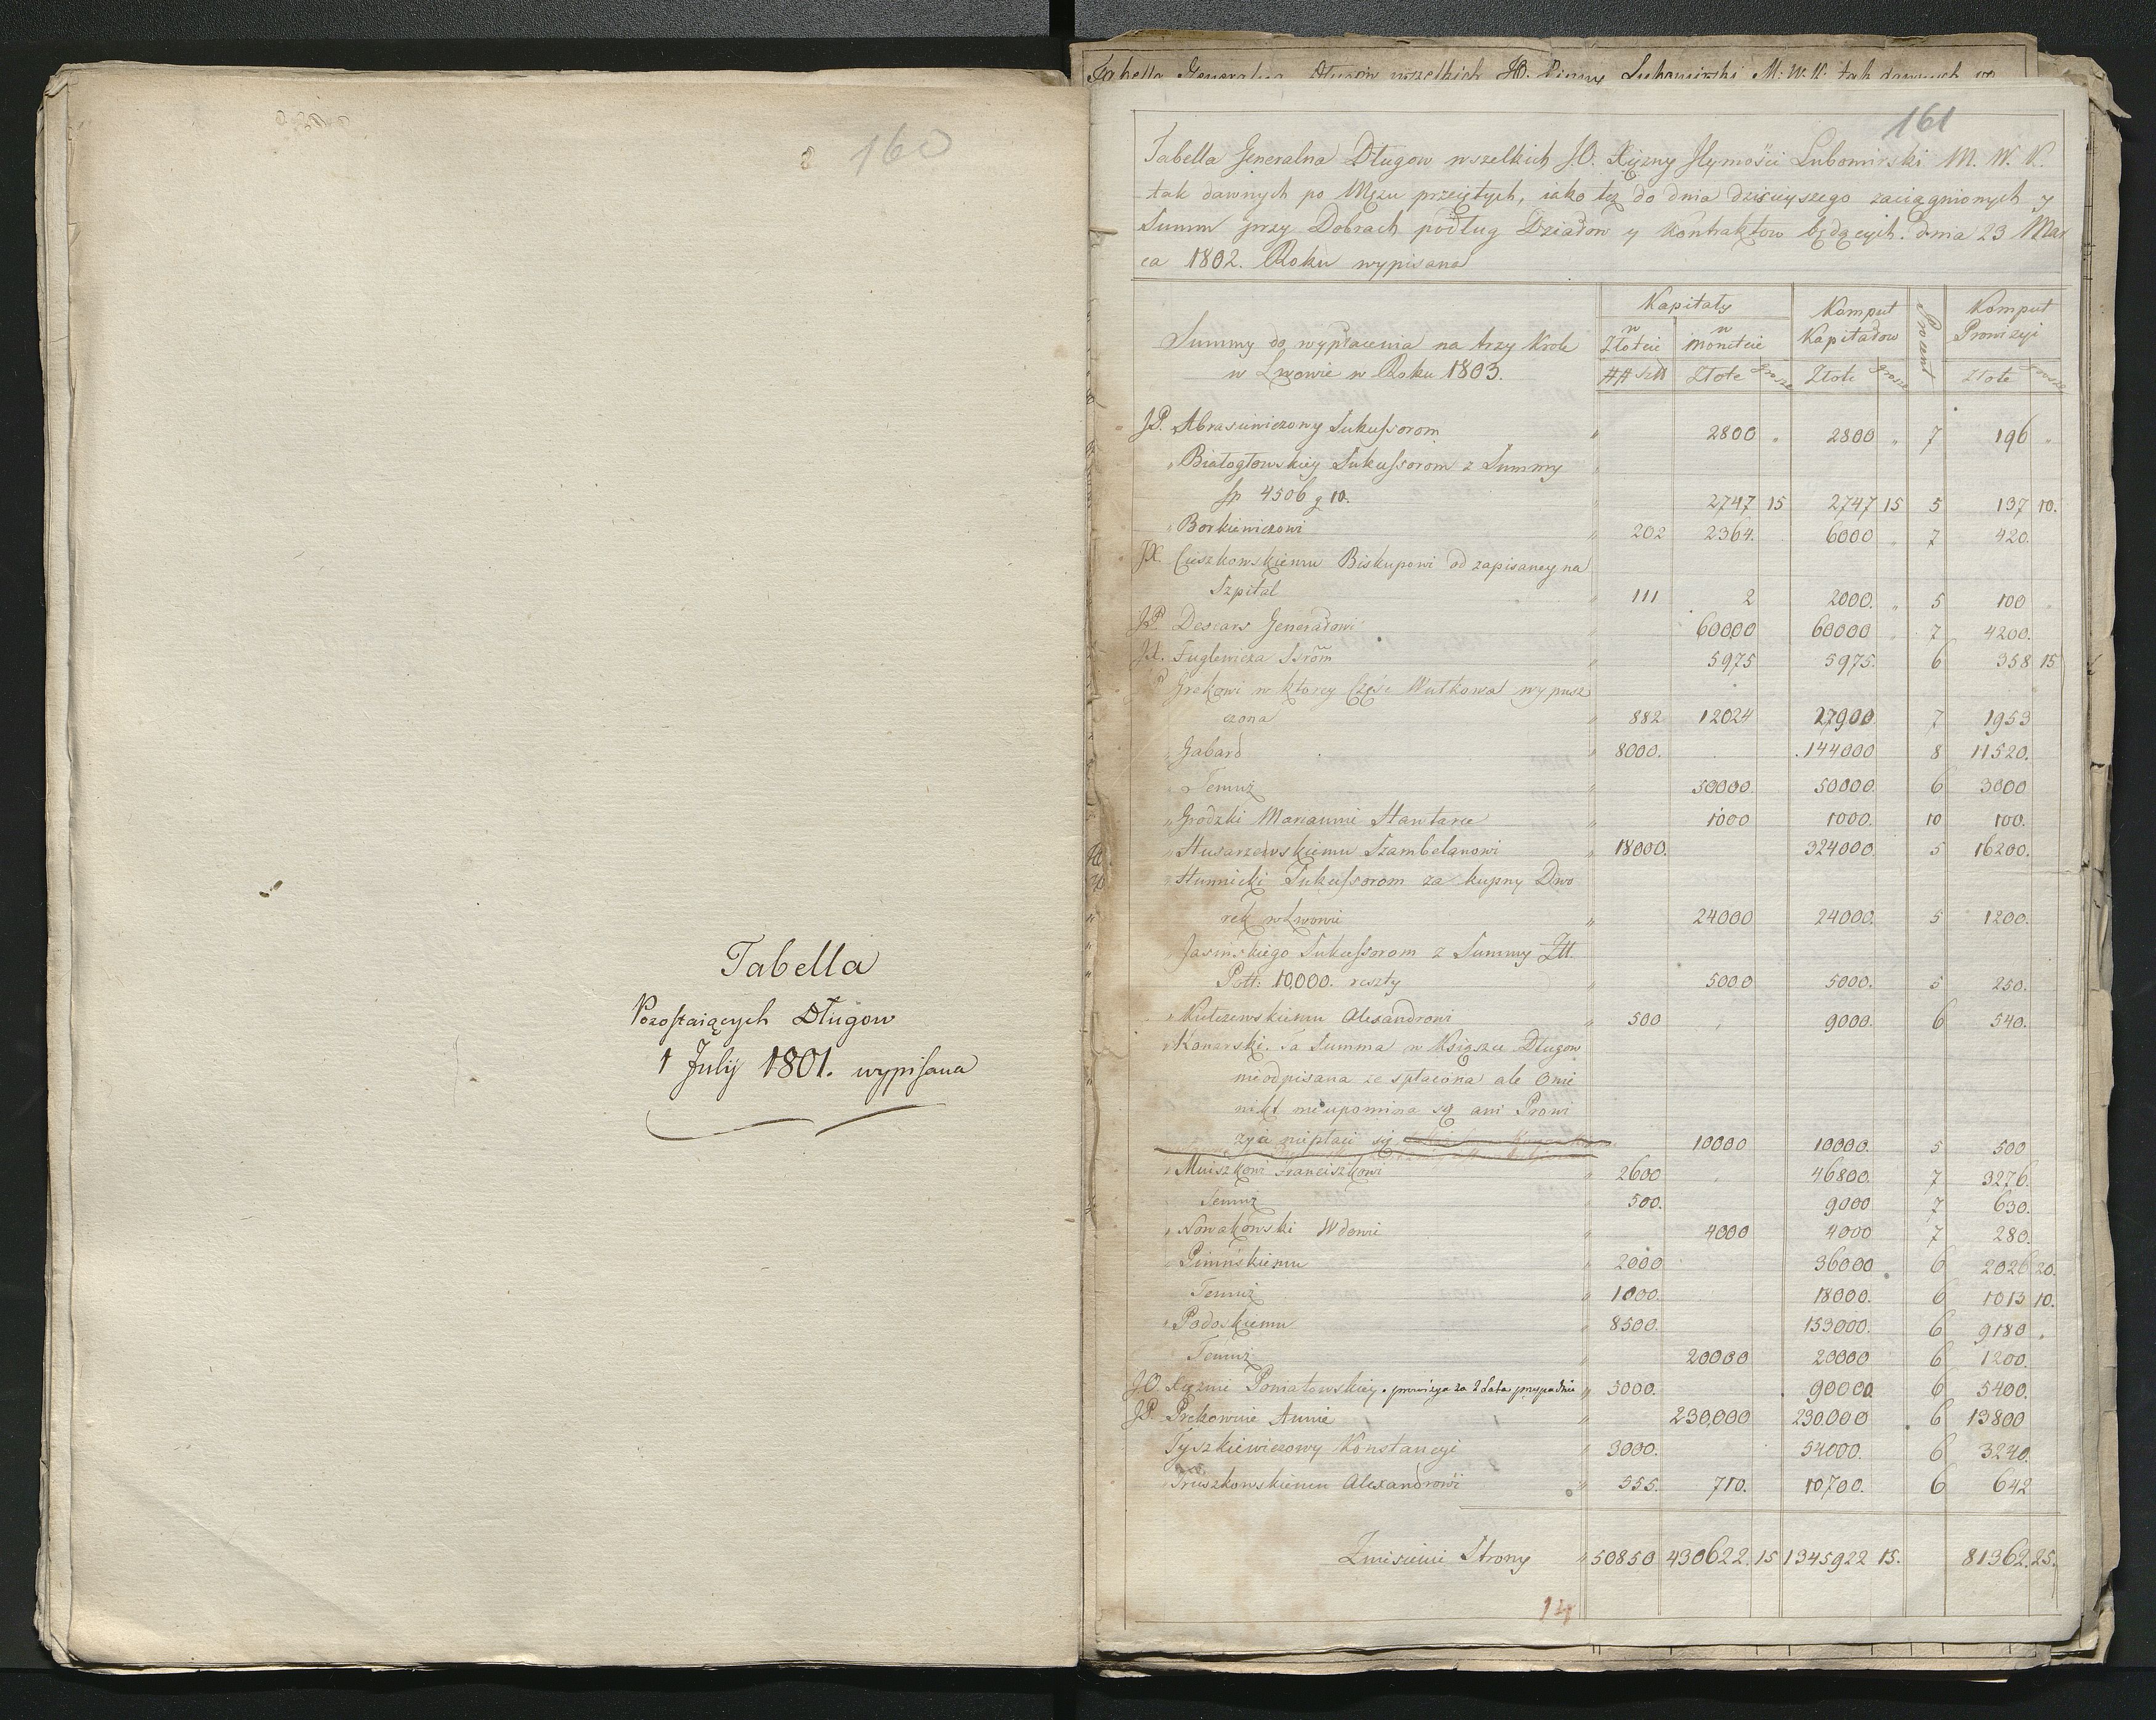 160
Tabella
Pozostaiących Długow
1 July 1801. wypisana
Tabella Generalna Długow wszelkich JO. Xiężny Lubomirski M: W: K: tak dawnych po
161
Tabella Generalna Długow wszelkich JO. Xiężny Jeymości Lubomirski M. W. K.
tak dawnych po Mężu przejętych, iako też do dnia dzisieyszego zaciągnionych y
Summ przy Dobrach podług Działow y Kontraktow będących. dnia 23 Mar
ca 1802. Roku wypisana
Summy do wypłacenia na trzy Krole
w Lwowie w Roku 1803.
Kapitały
w Złocie
w monecie
Komput Kapitałow
Procent
Komput Prowizyi
## Złote grosze Złote grosze Złote grosze
JP. Abrasiewiczowy Sukcessorom " 2800 " 2800 " 7 196 "
" Białogłowskiey Sukcessorom z Summy "
fp 4506 g 10. " 2747 15 2747 15 5 137 10.
" Borkiewiczowi " 202 2364. 6000 " 7 420.
JX Cieszkowskiemu Biskupowi od zapisaney na
Szpital " 111 2 2000. " 5 100 "
JP. Descars Generałowi 60000 60000 " 7 4200.
Fuglewicza " 5975 5975. 6 358 15
Grekowi w ktorey Część Wutkowa wypusz
czona " 882 12024 27900. 7 1953
" Gabard " 8000. 144000 8 11520.
" Temuż " 50000. 50000. 6 3000
" Grodzki Maryannie " 1000 1000. 10 100.
" Husarzewskiemu Szambelanowi " 18000. 324000. 5 16200.
" Humnicki Sukcessorom za kupny Dwo
rek w Lwowie " 24000 24000. 5 1200.
Jasińskiego Sukcessorom z Summy Złł.
Poll: 10,000. reszty " 5000 5000. 5 250.
" Kulczewskiemu Alexandrowi " 500 9000. 6 540.
" Konarski. Ta Summa w Książce Długow
nieodpisana że spłacona ale Onie
nikt nieupomina się ani Prowi
zyia niepłaci się 10000 10000. 5 500
" Mniszkowi Franciszkowi " 2600 46800. 7 3276.
Temuż " 500. 9000 7 630.
" Nowakowski Wdowie " 4000 4000 7 280.
" Pinińskiemu " 2000 36000 6 2026 20.
Temuż " 1000. 18000. 6 1013 10.
" Podoskiemu " 8500. 153000. 6 9180 "
Temuż " 20000 20000 6 1200.
J.O. Xiężnie Poniatowskiey. prowizya za 2 Lata przypadnie " 5000. 90000 6 5400.
JP. Prekownie Annie " 230,000 230.000 6 13800
Tyszkiewiczowy Konstancyi " 3000. 54000. 6 3240.
Truszkowskiemu Alexandrowi " 555. 710. 10700. 6 642
Zniesienie Strony " 50850 430622. 15 1345922 15. 81362. 25.
14